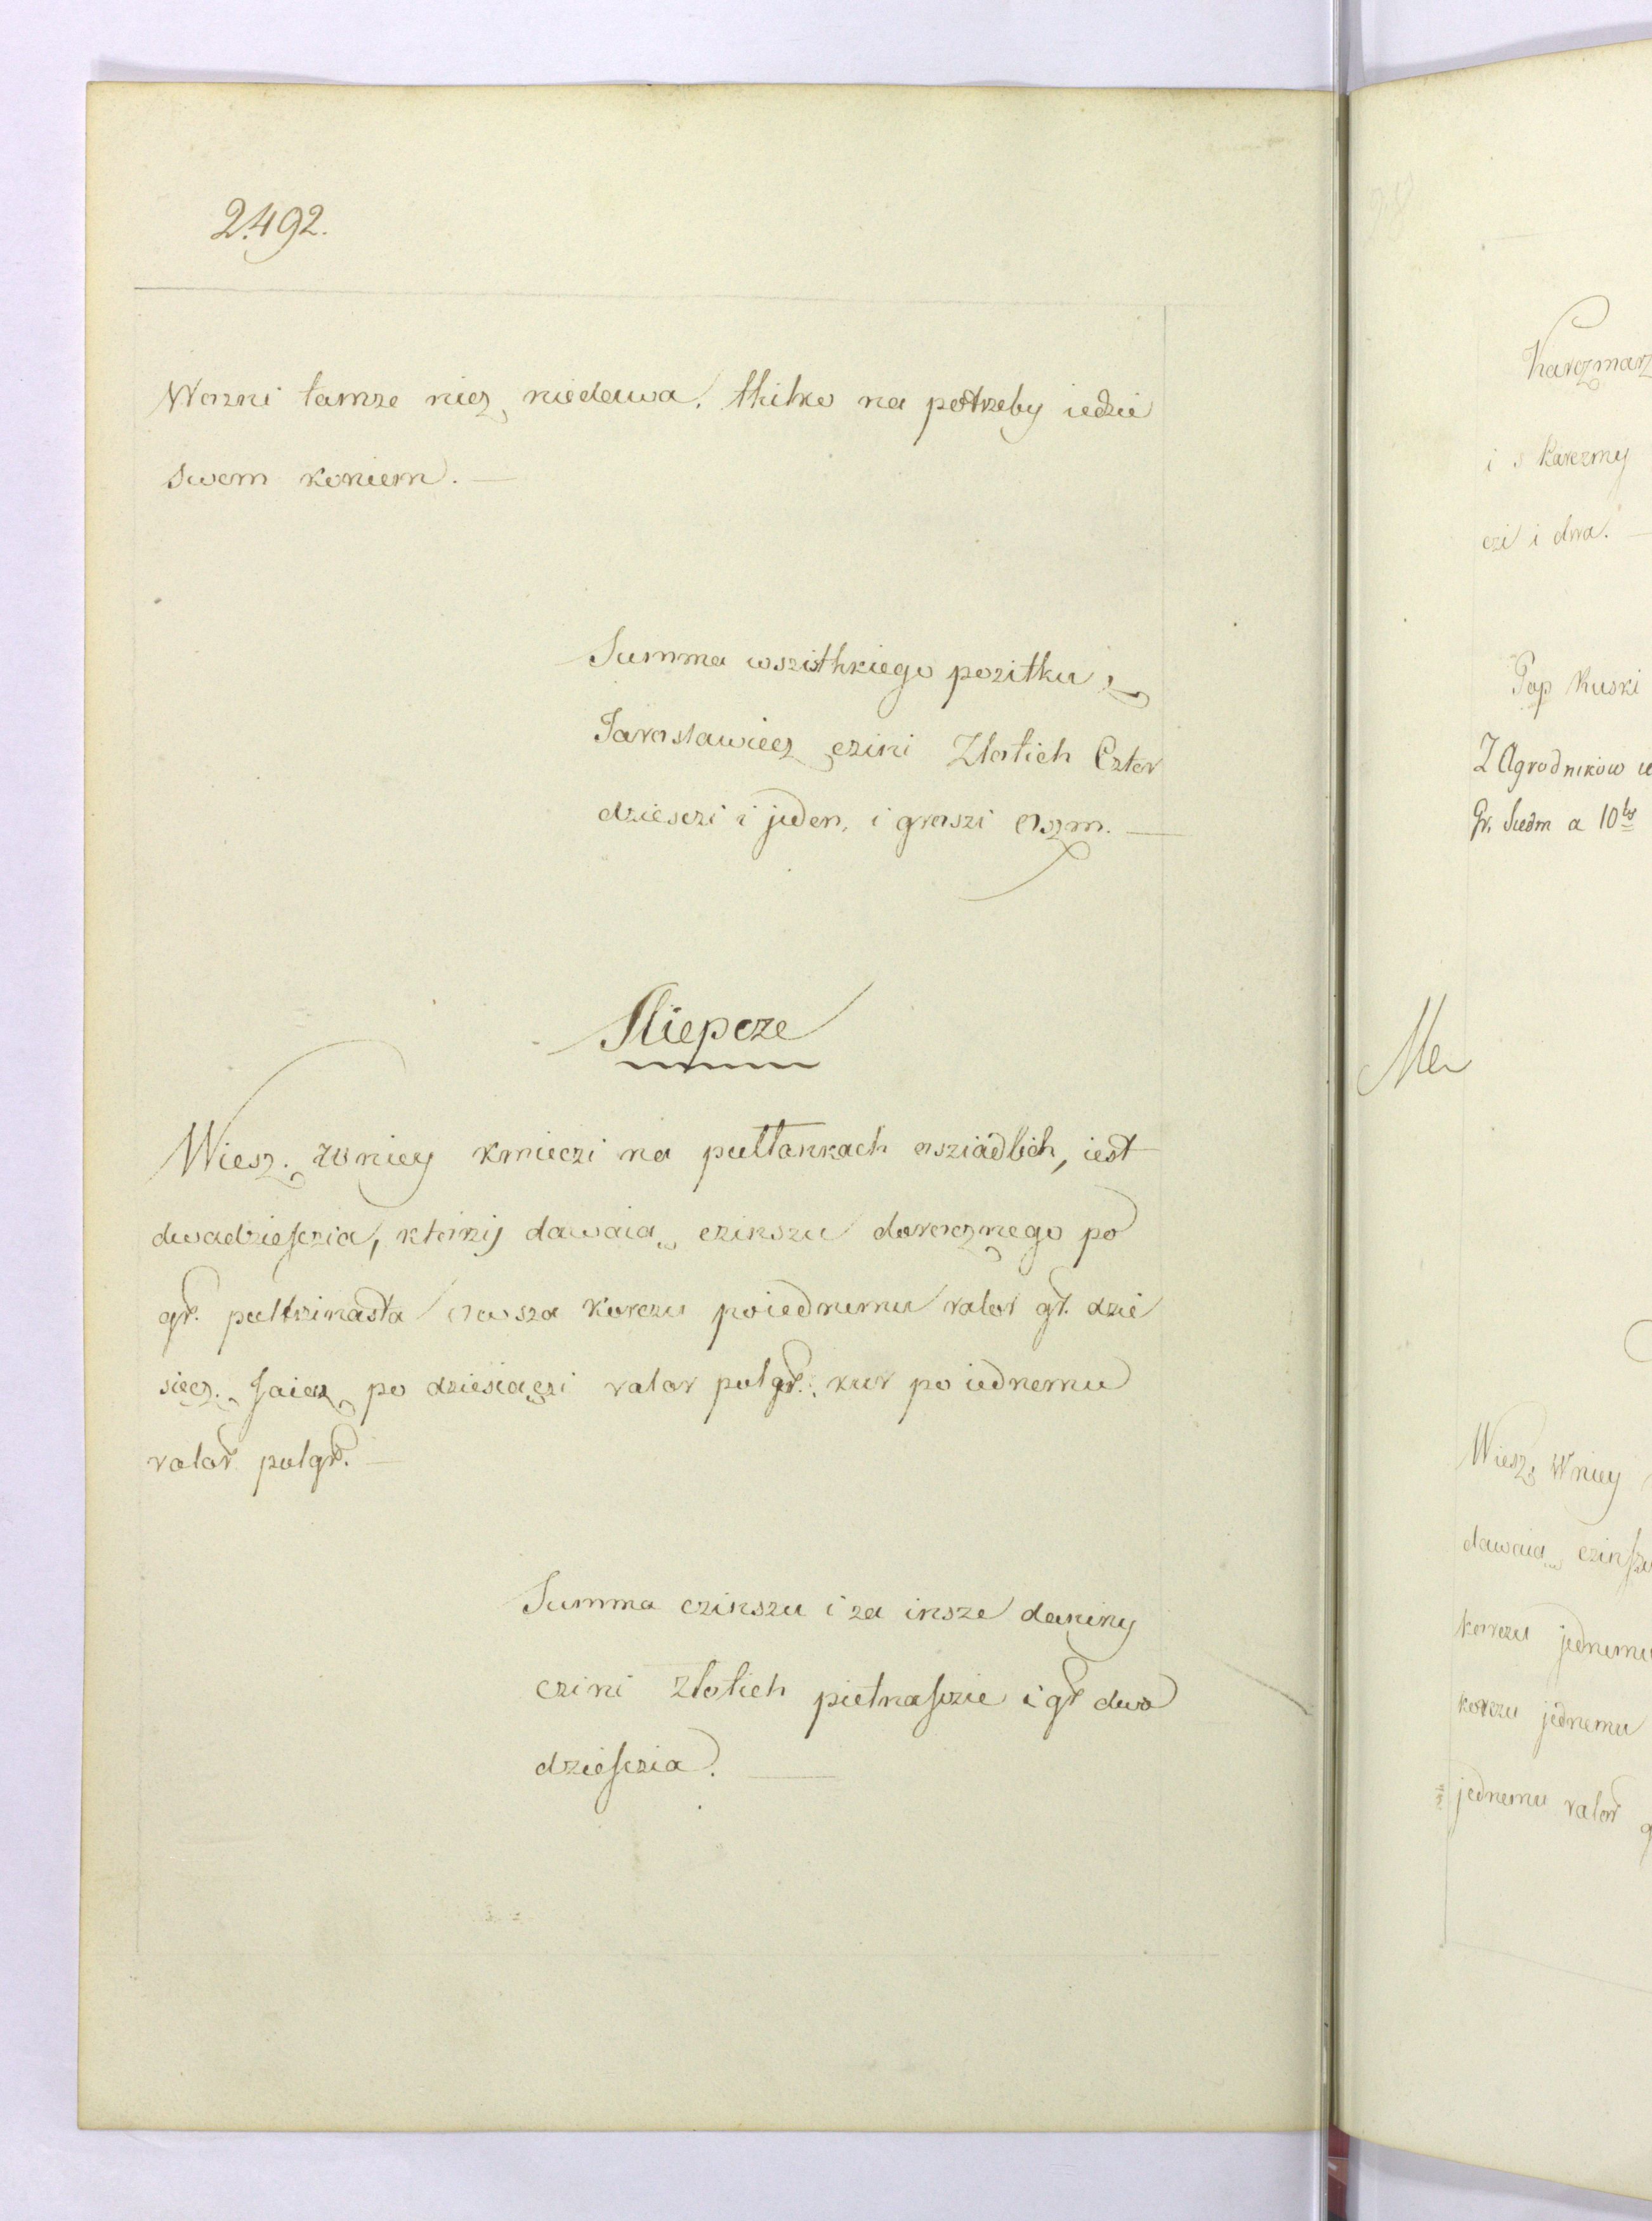 2492.
Wozni tamze nicz niedawa, thilko na potrzeby iedzie
swem koniem. —
Summa wszisthkiego pozitku z
Jaroslawiecz czini Złotich Czter
dziesczi i jeden, i groszi oszm. —
Sliepcze
Wiesz. w niey kmieczi na pułłankach osziadlich, iest
dwadziesczia, ktorzij dawaia czinszu dorocznego po
gr. pułtrzinasta owsza korczu poiednemu valor gr. dzie
siecz. Jaiecz po dziesiaczi valor pulgr. kur po iednemu
valor pulgr. —
Summa czinszu i za insze daniny
czini złotich pietnasczie i gr dwa
dziesczia. —
Karczmarz
i s karczmy
czi i dwa. —
Pop Ruski
Z Agrodnikow
Gr. Siedm a 10
Wiesz, w niey
dawaia czinszu
korczu jednemu
korczu jednemu
jednemu valor